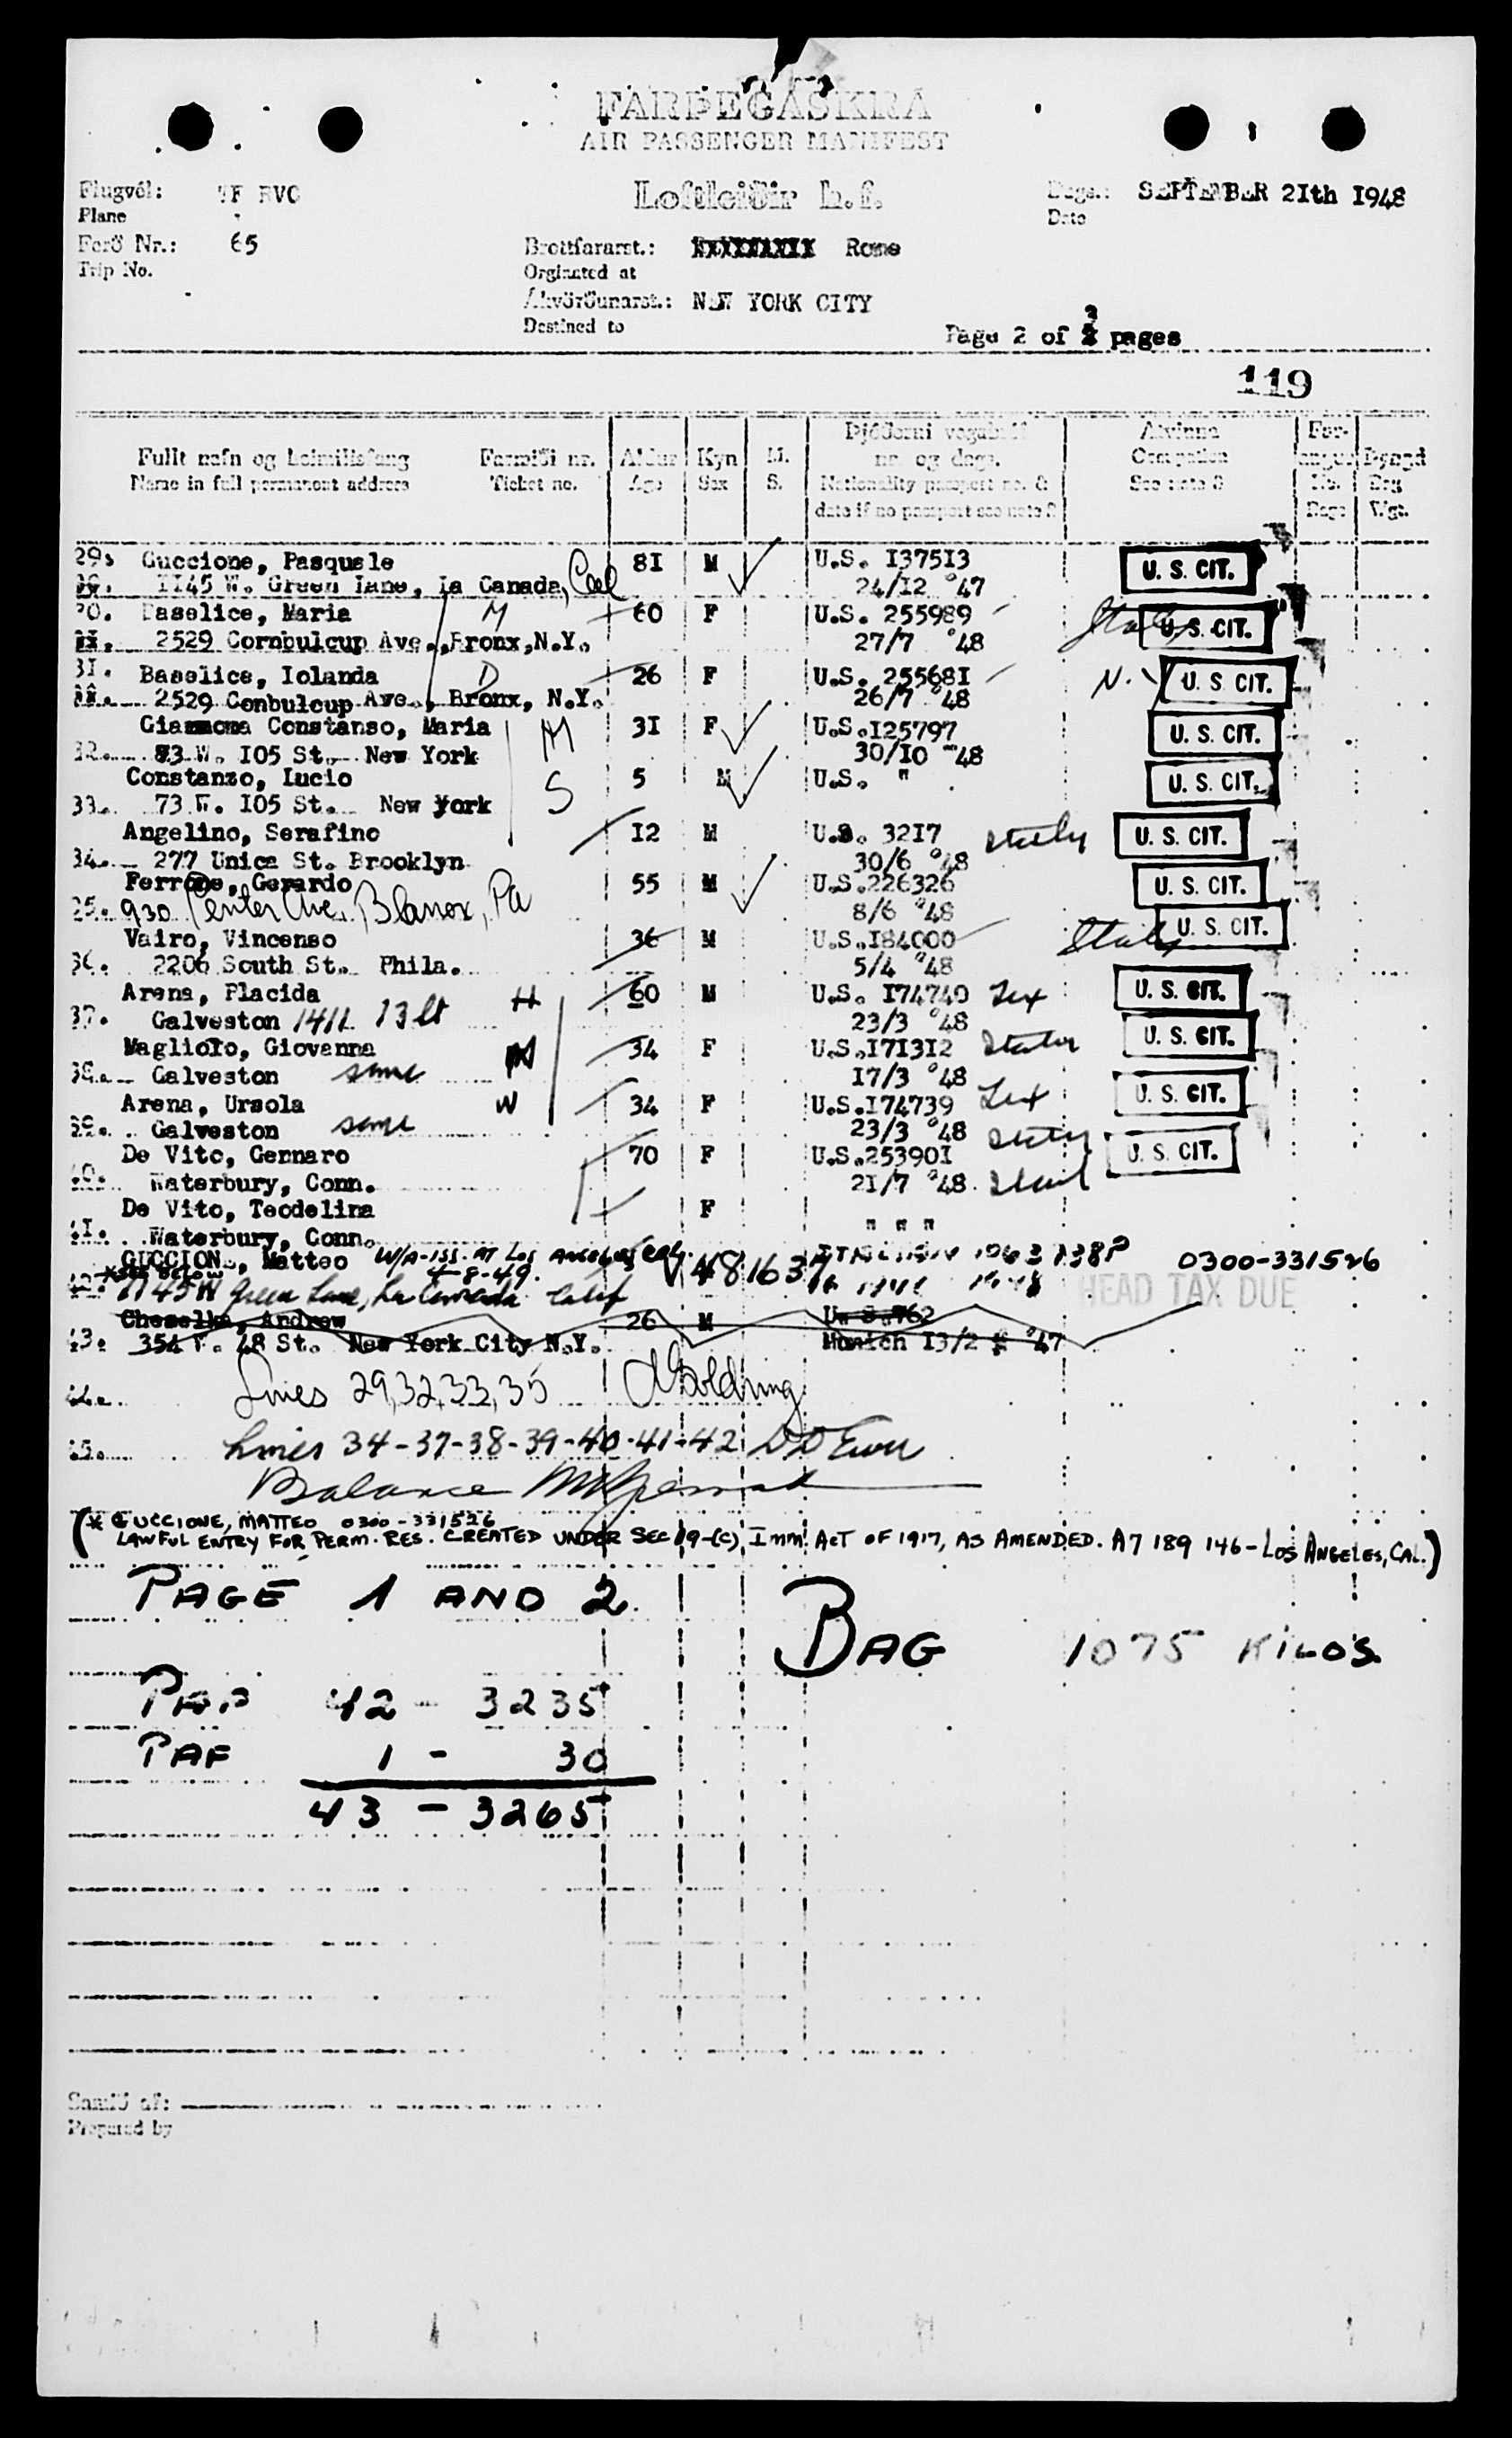 FARÞEGASKRÁ
AIR PASSENGER MANIFEST
Loftleiðir h.f.
Flugvél: TF RVC
Plane
Dags.: SEPTEMBER 21th 1948
Date
Ferð Nr.: 65
Trip No.
Brottfararst.: Rome
Orginated at
Ákvörðunarst.: NEW YORK CITY
Destined to
Page 2 of 3 pages
119
Fullt nafn og heimilisfang Farmiði nr. Aldur Kyn M. Þjóðerni vegabréf Atvinna Far-
Name in full permanent address Ticket no. Age Sex S. nr. og dags. Occupation Þyngd
Nationality passport no. & See note 3 No. Bag
date if no passport see note 2 Bags Wgt.
29. Guccione, Pasquale 81 M U.S. 137513 U. S. CIT.
1145 W. Green Lane, La Canada, Cal 24/12 °47
30. Baselice, Maria M 60 F U.S. 255989 Italy U. S. CIT.
2529 Cornbulcup Ave., Bronx, N.Y. 27/7 °48
31. Baselice, Iolanda D 26 F U.S. 255681 N.Y U. S. CIT.
2529 Conbulcup Ave., Bronx, N.Y. 26/7 °48
Giammona Constanso, Maria M 31 F U.S. 125797 U. S. CIT.
32. 73 W. 105 St. New York 30/10 48
Constanzo, Lucio S 5 M U.S. " U. S. CIT.
33. 73 W. 105 St. New York
Angelino, Serafino 12 M U.S. 3217 Italy U. S. CIT.
34. 277 Unica St. Brooklyn 30/6 °48
Perrone, Gerardo 55 M U.S. 226326 U. S. CIT.
35. 930 Center Ave. Blanox, Pa 8/6 °48
Vairo, Vincenso 36 M U.S. 184000 Italy U. S. CIT.
36. 2206 South St. Phila. 5/4 °48
Arena, Placida H 60 M U.S. 174740 Tex U. S. CIT.
37. Galveston 1411 13 St 23/3 °48
Magliolo, Giovanna M 34 F U.S. 171312 U. S. CIT.
38. Galveston same 17/3 °48
Arena, Ursola W 34 F U.S. 174739 Tex U. S. CIT.
39. Galveston same 23/3 °48
De Vito, Gennaro 70 F U.S. 253901 Italy U. S. CIT.
40. Waterbury, Conn. 21/7 °48
De Vito, Teodelina F " " "
41. Waterbury, Conn.
GUCCIONE, Matteo W/A-ISS. AT LOS ANGELES CAL. 4-8-49. V 481637 0300-331526
*SEE BELOW
42. 1145 W Green Lane, La Canada Calif HEAD TAX DUE
Cheselka, Andrew 26 M U. S. 762
43. 354 48 St. New York City N.Y. Munich 13/2 °47
44. Lines 29,32,33,35 Goldring
45. Lines 34-37-38-39-40-41-42
Balance
(* GUCCIONE, MATTEO 0300-331526
LAWFUL ENTRY FOR PERM. RES. CREATED UNDER SEC 19-(C), IMM. ACT OF 1917, AS AMENDED. A7 189 146 - LOS ANGELES, CAL.)
PAGE 1 AND 2.
BAG 1075 KILOS.
PAP 42 - 3235
PAF 1 - 30
43 - 3265
Samið af:
Prepared by